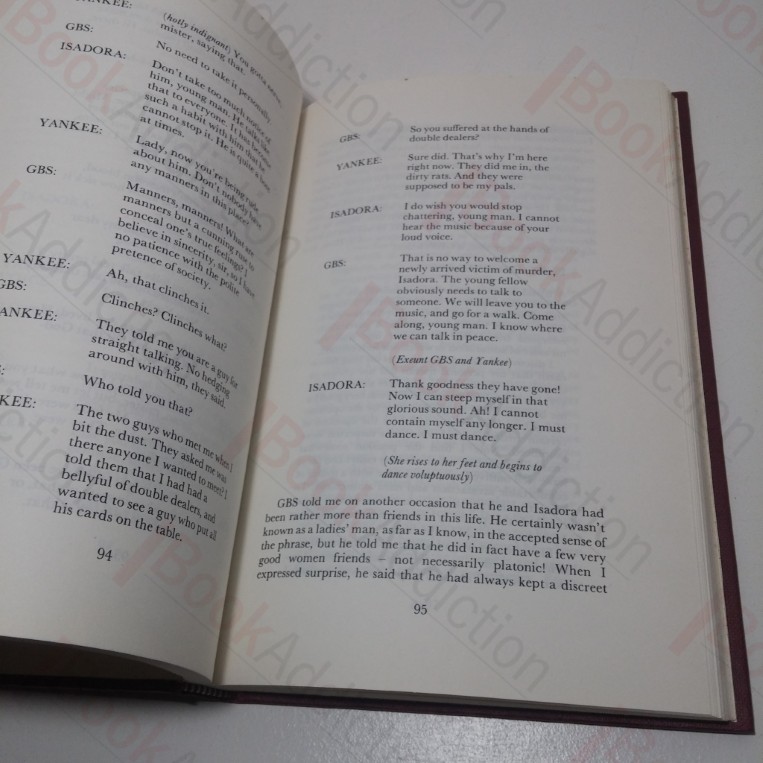 YANKEE: (hotly indignant) You gotta nerve,
mister, saying that.
GBS: No need to take it personally.
ISADORA: Don't take too much notice of
him, young man. He talks like
that to everyone. It has become
such a habit with him that he
cannot stop it. He is quite a bore
at times.
YANKEE: Lady, now you're being rude
about him. Don't nobody have
any manners in this place?
GBS: Manners, manners! What are
manners but a cunning ruse to
conceal one's true feelings? I
believe in sincerity, sir, so I have
no patience with the polite
pretence of society.
YANKEE: Ah, that clinches it.
GBS: Clinches? Clinches what?
YANKEE: They told me you are a guy for
straight talking. No hedging
around with him, they said.
Who told you that?
KEE: The two guys who met me when I
bit the dust. They asked me was
there anyone I wanted to meet? I
told them that I had had a
bellyful of double dealers, and
wanted to see a guy who put all
his cards on the table.
94
GBS: So you suffered at the hands of
double dealers?
YANKEE: Sure did. That's why I'm here
right now. They did me in, the
dirty rats. And they were
supposed to be my pals.
ISADORA: I do wish you would stop
chattering, young man. I cannot
hear the music because of your
loud voice.
GBS: That is no way to welcome a
newly arrived victim of murder,
Isadora. The young fellow
obviously needs to talk to
someone. We will leave you to the
music, and go for a walk. Come
along, young man. I know where
we can talk in peace.
(Exeunt GBS and Yankee)
ISADORA: Thank goodness they have gone!
Now I can steep myself in that
glorious sound. Ah! I cannot
contain myself any longer. I must
dance. I must dance.
(She rises to her feet and begins to
dance voluptuously)
GBS told me on another occasion that he and Isadora had
been rather more than friends in this life. He certainly wasn't
known as a ladies' man, as far as I know, in the accepted sense of
the phrase, but he told me that he did in fact have a few very
good women friends – not necessarily platonic! When I
expressed surprise, he said that he had always kept a discreet
95
BookAddiction